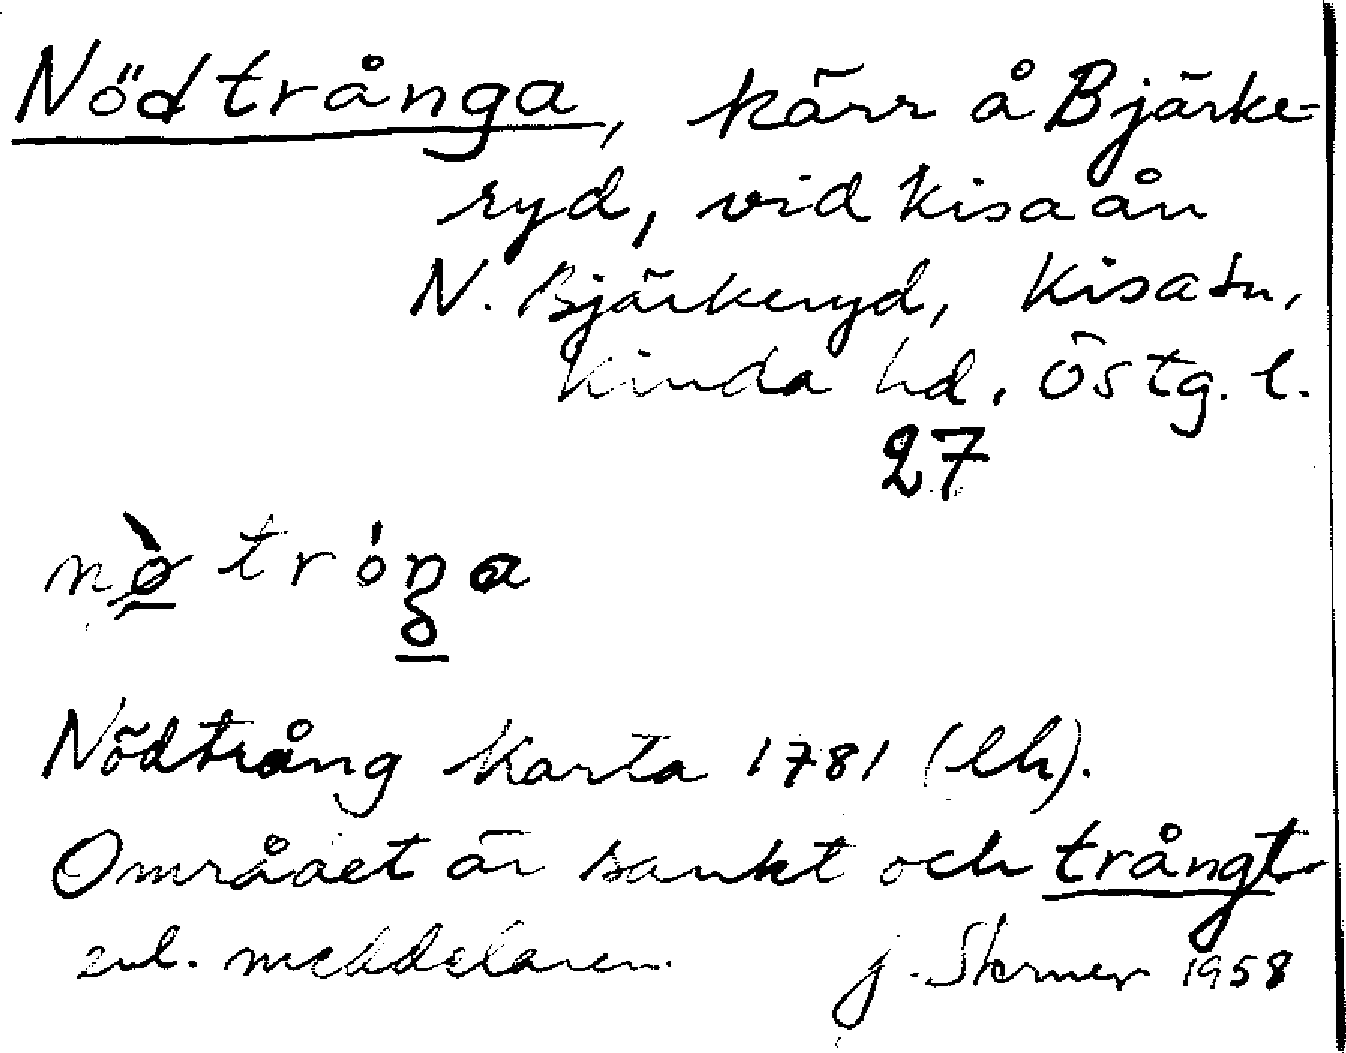 Nödtrånga, kärr å Bjärke-
ryd, vid Kisaån
N. Bjärkeryd, Kisa sn,
Kinda hd, Östg. l.
27
nø̀ tróŋa
Nödtrång Karta 1781 (eh).
Området är sankt och trångt
enl. meddelaren. J. Sterner 1958